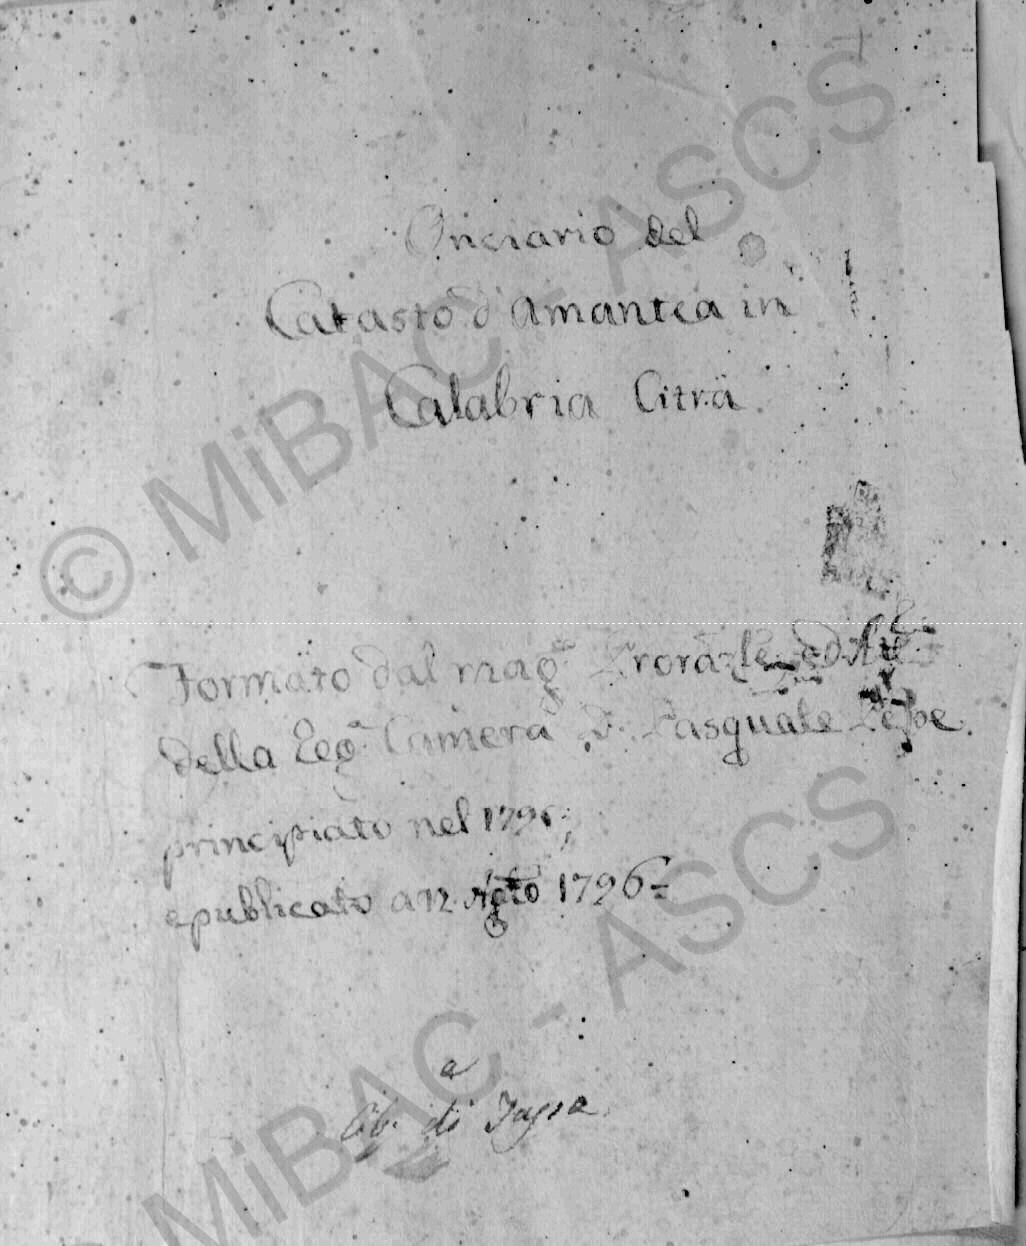 Onciario del
Catasto d'Amantea in
Calabria Citrä
Formato dal mag.co
della Reg.a Camera D. Pasquale Pepe.
principiato nel
e publicato a 12 Ag.to 1796=
a
Lib. di
© MiBAC - ASCS
MiBAC - ASCS